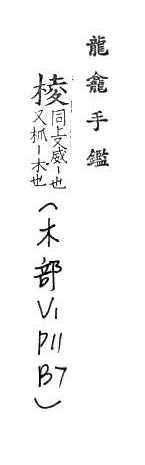 龍龕手鑑
棱同上又威ー也
又柧ー木也
(木部
V1
P11
B7)